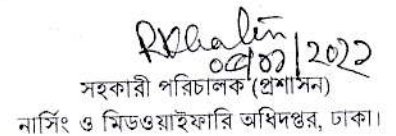 ০৫/০১/২০২১
সহকারী পরিচালক (প্রশাসন)
নার্সিং ও মিডওয়াইফারি অধিদপ্তর, ঢাকা।